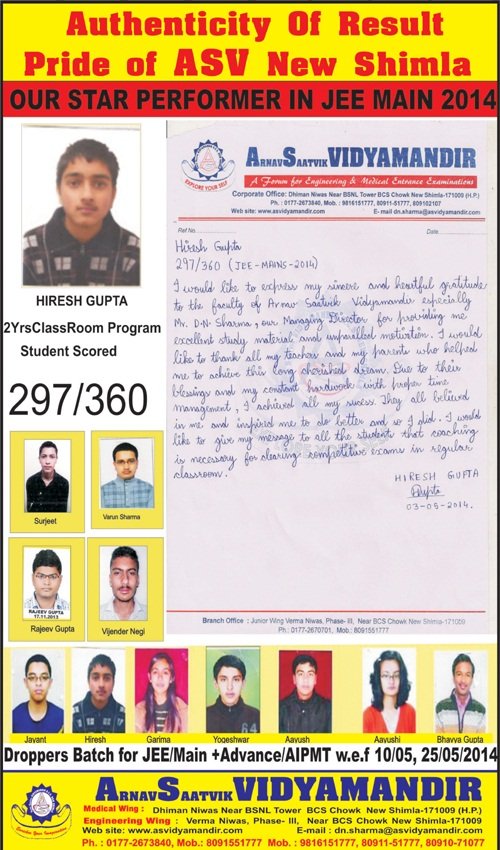 Authenticity Of Result
Pride of ASV New Shimla
OUR STAR PERFORMER IN JEE MAIN 2014
HIRESH GUPTA
2YrsClassRoom Program
Student Scored
297/360
Surjeet
Varun Sharma
RAJEEV GUPTA
17.11.2013
Rajeev Gupta
Vijender Negi
EXPLORE YOUR SELF
ARNAVSAATVIKVIDYAMANDIR
A Forum for Engineering & Medical Entrance Examinations
Corporate Office : Dhiman Niwas Near BSNL Tower BCS Chowk New Shimla-171009 (H.P.)
Ph : 0177-2673840, Mob. : 9816151777, 80911-51777, 80910-62107
Web site: www.asvidyamandir.com E- mail dn.sharma@asvidyamandir.com
Ref No. Date
Hiresh Gupta
297/360 (JEE-MAINS-2014)
I would like to express my sincere and heartful gratitude
to the faculty of Arnav Saatvik Vidyamandir especially
Mr. D.N. Sharma, our Managing Director for providing me
excellent study material and unparalled motivation. I would
like to thank all my teachers and my parents who helped
me to achieve this long cherished dream. Due to their
blessings and my constant hardwork with proper time
management, I achieved all my sucess. They all believed
in me and inspired me to do better and so I did. I would
like to give my message to all the student that coaching
is necessary for clearing competitive exams in regular
classroom.
HIRESH GUPTA
Gupta
03-05-2014.
Branch Office : Junior Wing Verma Niwas, Phase- III, Near BCS Chowk New Shimla-171009
Ph : 0177-2670701, Mob.: 8091551777
Jayant
Hiresh
Garima
Yogeshwar
Aayush
Aayushi
Bhavya Gupta
Droppers Batch for JEE/Main +Advance/AIPMT w.e.f 10/05, 25/05/2014
ARNAVSAATVIKVIDYAMANDIR
Medical Wing : Dhiman Niwas Near BSNL Tower BCS Chowk New Shimla-171009 (H.P.)
Engineering Wing : Verma Niwas, Phase- III, Near BCS Chowk New Shimla-171009
Web site: www.asvidyamandir.com E-mail : dn.sharma@asvidyamandir.com
Ph. : 0177-2673840, Mob.: 8091551777 Mob.: 98161-51777, 80911-51777, 80910-71077